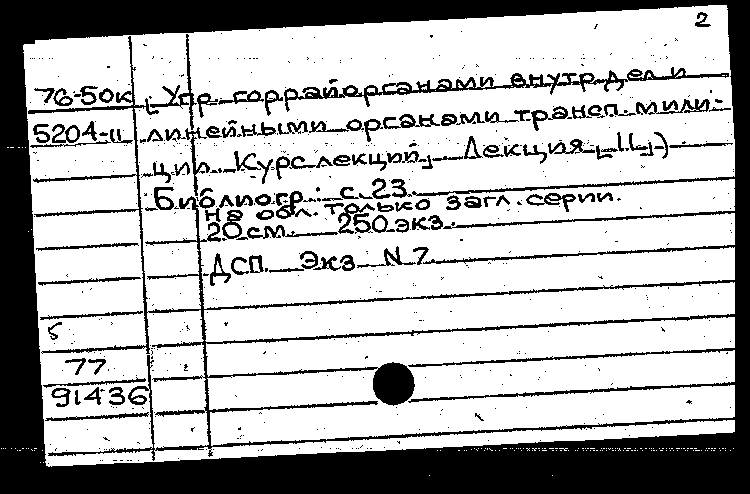 2
76-50к [Упр. горрайорганами внутр. дел и
5204-11 линейными органами трансп. мили-
ции. Курс лекций] Лекция [11])
Библиогр.: с. 23.
На обл. только загл. серии.
20 см. 250 экз.
ДСП. Экз N 7.
5
77
91436